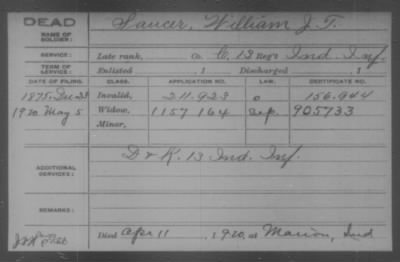 DEAD
NAME OF SOLDIER: Saucer, William J. T.
SERVICE: Late rank, Co. C, 13 Reg't Ind. Inf.
TERM OF SERVICE: Enlisted , 1 Discharged , 1
DATE OF FILING. CLASS. APPLICATION NO. LAW. CERTIFICATE NO.
1875. Dec. 28 Invalid, 211.923 o 156.944
1920 May 5 Widow, 1157 164 905733
Minor,
ADDITIONAL SERVICES: D & K. 13 Ind. Inf.
REMARKS:
Died Apr 11 , 1920, at Marion, Ind